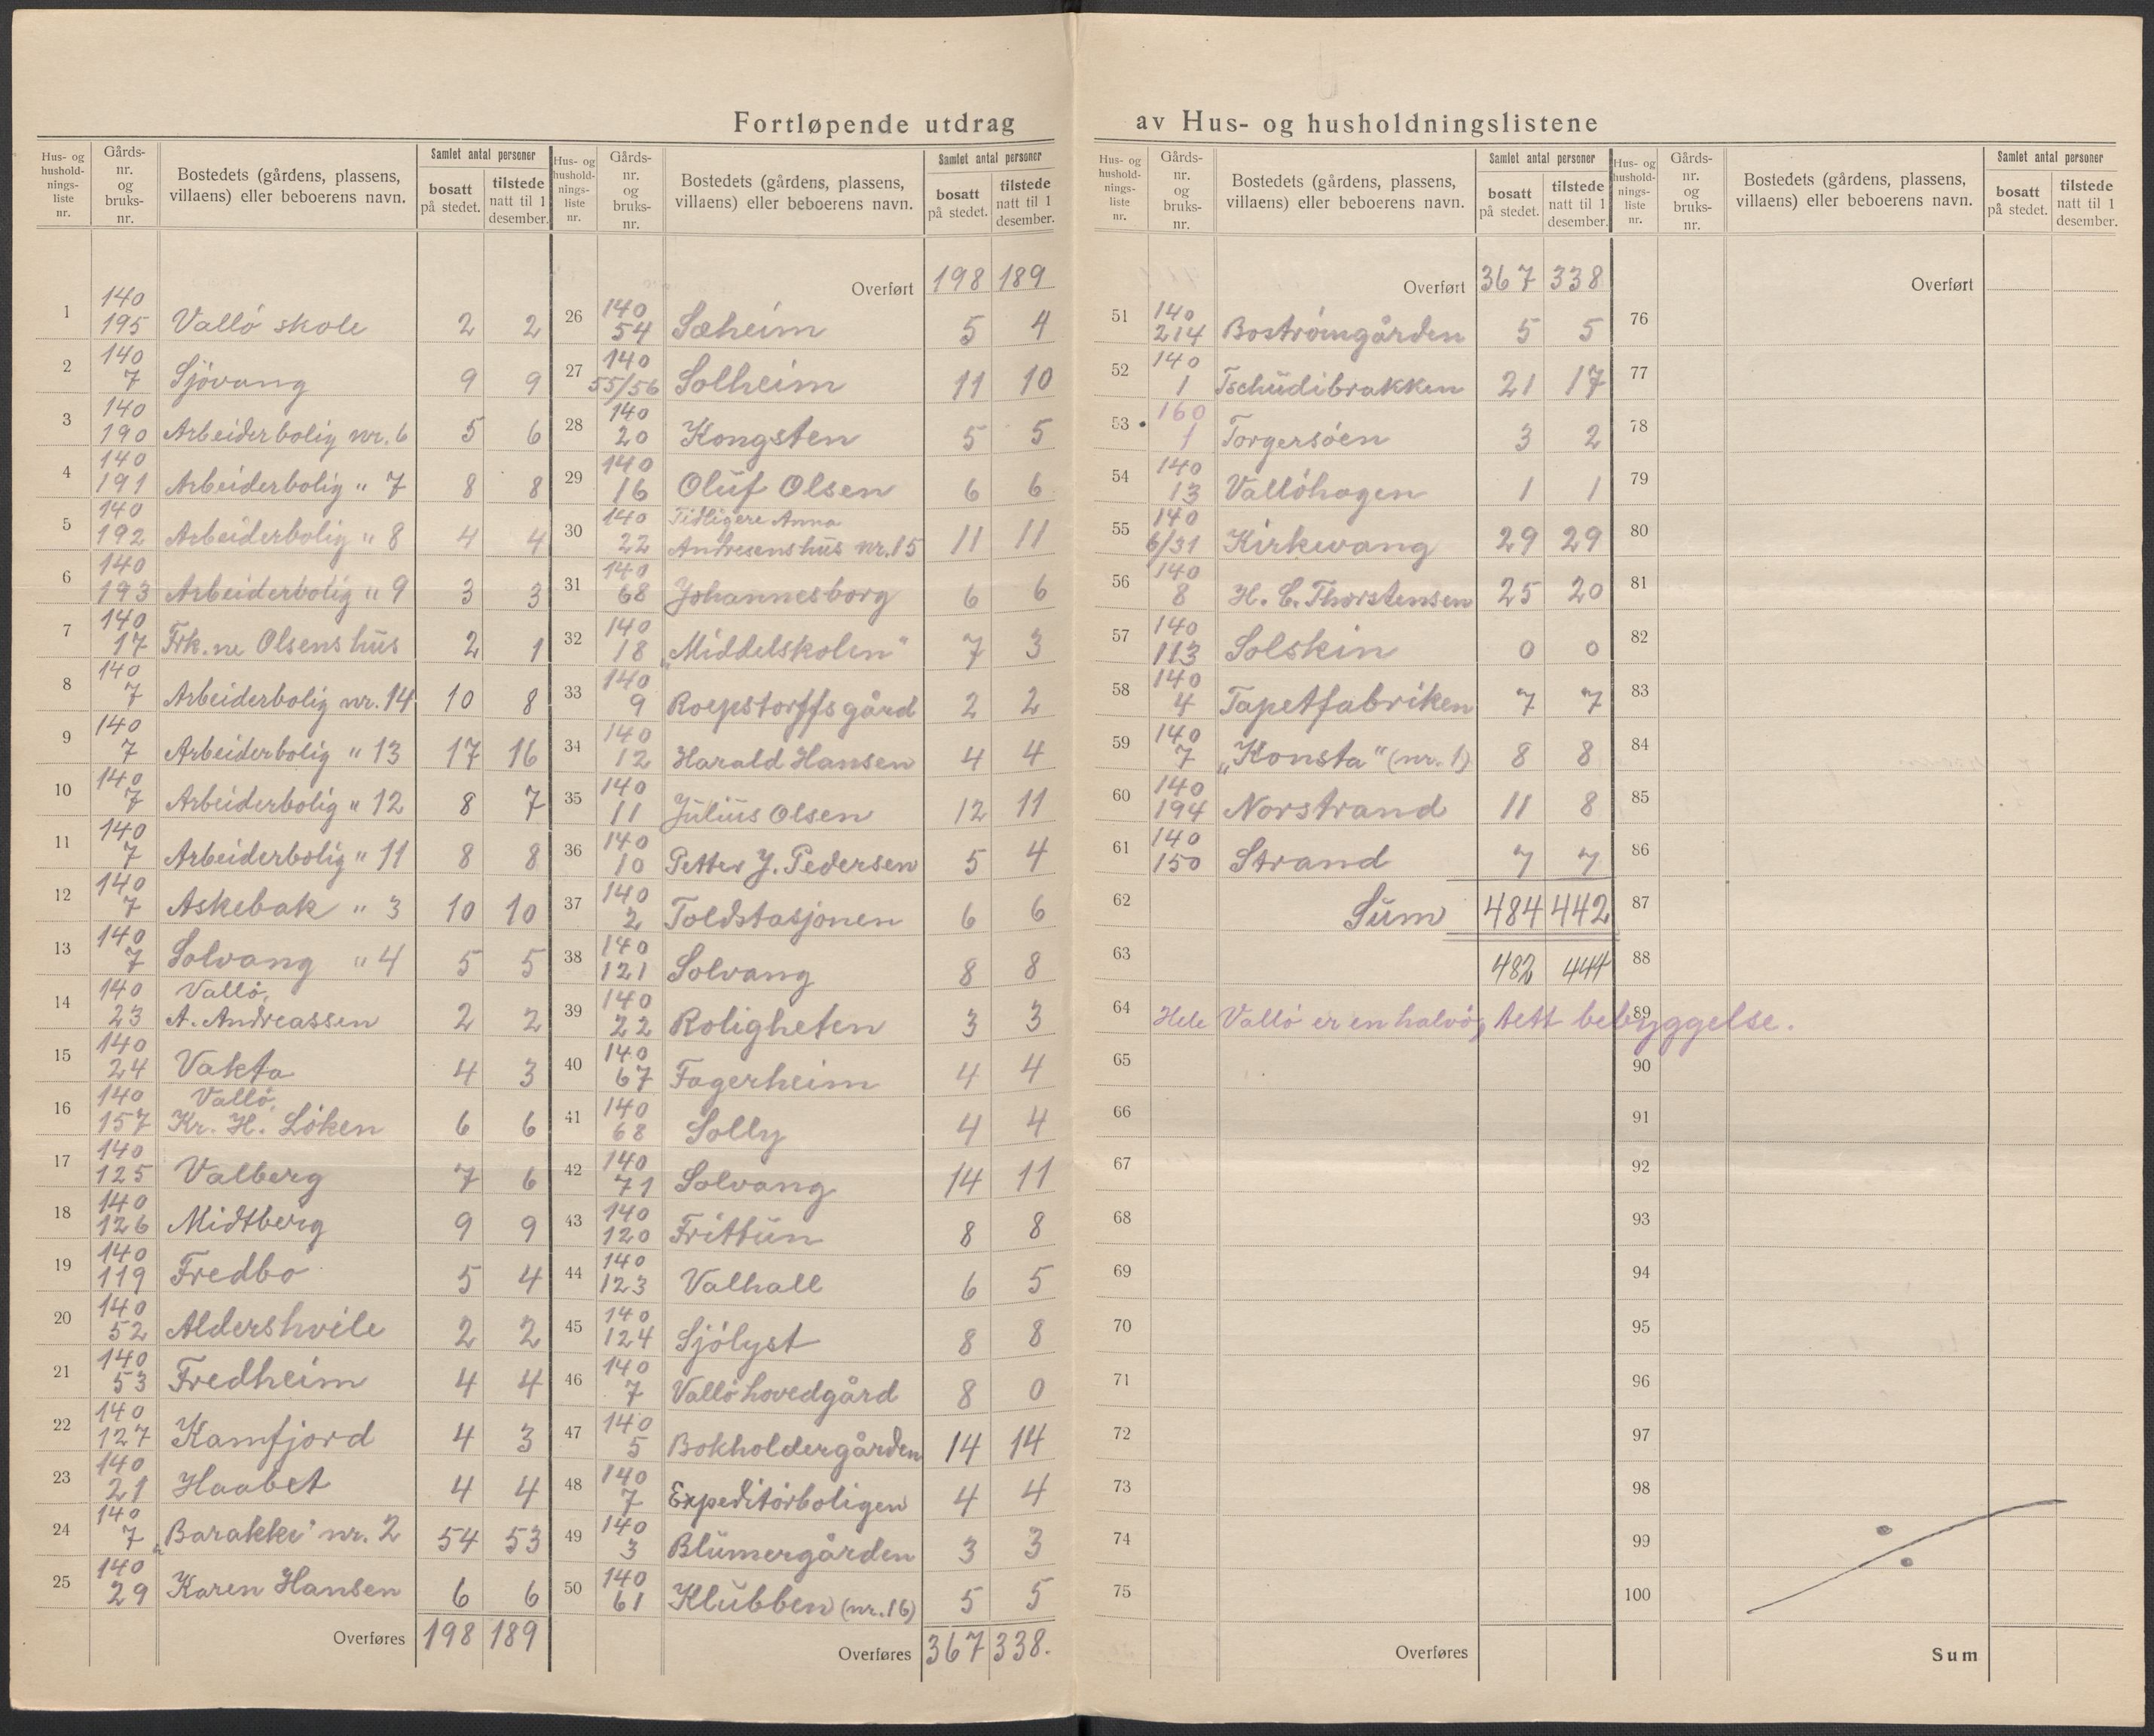 Fortløpende utdrag av Hus- og husholdningslistene
Hus- og husholdningsliste nr. | Gårds-nr. og bruks-nr. | Bostedets (gårdens, plassens, villaens) eller beboerens navn. | Samlet antal personer: bosatt på stedet. | tilstede natt til 1 desember.
1 | 140 195 | Vallö skole | 2 | 2
2 | 140 7 | Sjövang | 9 | 9
3 | 140 190 | Arbeiderbolig nr. 6 | 5 | 6
4 | 140 191 | Arbeiderbolig " 7 | 8 | 8
5 | 140 192 | Arbeiderbolig " 8 | 4 | 4
6 | 140 193 | Arbeiderbolig " 9 | 3 | 3
7 | 140 17 | Frk.ne Olsens hus | 2 | 1
8 | 140 7 | Arbeiderbolig nr. 14 | 10 | 8
9 | 140 7 | Arbeiderbolig " 13 | 17 | 16
10 | 140 7 | Arbeiderbolig " 12 | 8 | 7
11 | 140 7 | Arbeiderbolig " 11 | 8 | 8
12 | 140 7 | Askebak " 3 | 10 | 10
13 | 140 7 | Solvang " 4 | 5 | 5
14 | 140 23 | Vallö, A. Andreassen | 2 | 2
15 | 140 24 | Vakta | 4 | 3
16 | 140 157 | Vallö, Kr. H. Löken | 6 | 6
17 | 140 125 | Valberg | 7 | 6
18 | 140 126 | Midtberg | 9 | 9
19 | 140 119 | Fredbo | 5 | 4
20 | 140 52 | Aldershvile | 2 | 2
21 | 140 53 | Fredheim | 4 | 4
22 | 140 127 | Kamfjord | 4 | 3
23 | 140 21 | Haabet | 4 | 4
24 | 140 7 | „Barakke" nr. 2 | 54 | 53
25 | 140 29 | Karen Hansen | 6 | 6
Overføres 198 189
Hus- og husholdningsliste nr. | Gårds-nr. og bruks-nr. | Bostedets (gårdens, plassens, villaens) eller beboerens navn. | Samlet antal personer: bosatt på stedet. | tilstede natt til 1 desember.
Overført 198 189
26 | 140 54 | Sæheim | 5 | 4
27 | 140 55/56 | Solheim | 11 | 10
28 | 140 20 | Kongsten | 5 | 5
29 | 140 16 | Oluf Olsen | 6 | 6
30 | 140 22 | Tidligere Anna Andresens hus nr. 15 | 11 | 11
31 | 140 68 | Johannesborg | 6 | 6
32 | 140 18 | „Middelskolen" | 7 | 3
33 | 140 9 | Roepstorffs gård | 2 | 2
34 | 140 12 | Harald Hansen | 4 | 4
35 | 140 11 | Julius Olsen | 12 | 11
36 | 140 10 | Petter J. Pedersen | 5 | 4
37 | 140 2 | Toldstasjonen | 6 | 6
38 | 140 121 | Solvang | 8 | 8
39 | 140 22 | Roligheten | 3 | 3
40 | 140 67 | Fagerheim | 4 | 4
41 | 140 68 | Solly | 4 | 4
42 | 140 71 | Solvang | 14 | 11
43 | 140 120 | Frittun | 8 | 8
44 | 140 123 | Valhall | 6 | 5
45 | 140 124 | Sjölyst | 8 | 8
46 | 140 7 | Vallö hovedgård | 8 | 0
47 | 140 5 | Bokholdergården | 14 | 14
48 | 140 7 | Expeditörboligen | 4 | 4
49 | 140 3 | Blumergården | 3 | 3
50 | 140 61 | Klubben (nr. 16) | 5 | 5
Overføres 367 338.
Hus- og husholdningsliste nr. | Gårds-nr. og bruks-nr. | Bostedets (gårdens, plassens, villaens) eller beboerens navn. | Samlet antal personer: bosatt på stedet. | tilstede natt til 1 desember.
Overført 367 338
51 | 140 214 | Boströmgården | 5 | 5
52 | 140 1 | Tschudibrakken | 21 | 17
53 | 160 1 | Torgersöen | 3 | 2
54 | 140 13 | Vallöhagen | 1 | 1
55 | 140 6/31 | Kirkevang | 29 | 29
56 | 140 8 | H. C. Thorstensen | 25 | 20
57 | 140 113 | Solskin | 0 | 0
58 | 140 4 | Tapetfabriken | 7 | 7
59 | 140 7 | „Konsta" (nr. 1) | 8 | 8
60 | 140 194 | Norstrand | 11 | 8
61 | 140 150 | Strand | 7 | 7
62 | Sum | 484 | 442
63 | 482 | 444
64 Hele Vallö er en halvö, tett bebyggelse.
65
66
67
68
69
70
71
72
73
74
75
Overføres
Hus- og husholdningsliste nr. | Gårds-nr. og bruks-nr. | Bostedets (gårdens, plassens, villaens) eller beboerens navn. | Samlet antal personer: bosatt på stedet. | tilstede natt til 1 desember.
Overført
76
77
78
79
80
81
82
83
84
85
86
87
88
89
90
91
92
93
94
95
96
97
98
99
100
Sum